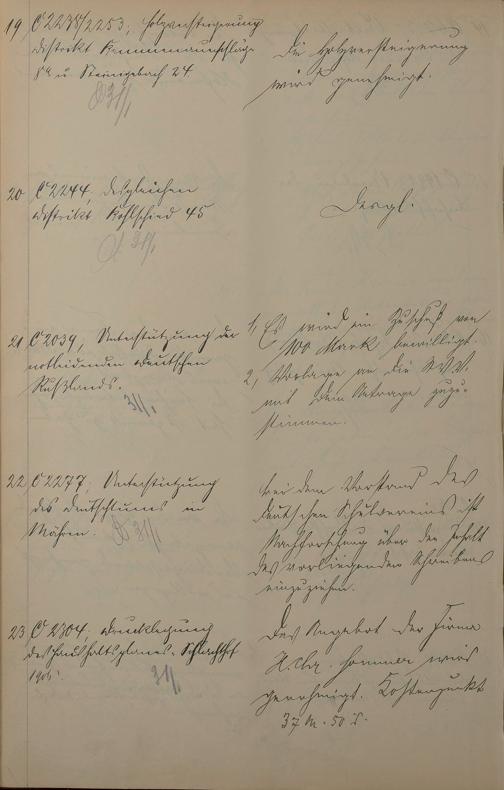 19 C 2238/2253, Holzversteigerung
Distrikt
8a u. Steingebach 24
31/1
Die Holzversteigerung
wird genehmigt.
20 C 2244, desgleichen
Distrikt Kohlschied 45
31/1
Desgl.
21 C 2039, Unterstützung der
notleidenden Deutschen
Rußlands.
31/1
1, Es wird ein Zuschuß von
100 Mark bewilligt.
2, Vorlage an die S.V.V.
mit dem Antrage zuzu-
stimmen.
22 C 2277; Unterstützung
des Deutschtums in
Mähren.
31/1
Bei dem Vorstand des
Deutschen Schulvereins ist
Nachforschung über den Inhalt
des vorliegenden Schreibens
einzuziehen.
23 C 2304, Drucklegung
des Haushaltsplanes. Schlachthof
31/1
Das Angebot der Firma
wird
genehmigt. Kostenpunkt
37 M. 50 d.